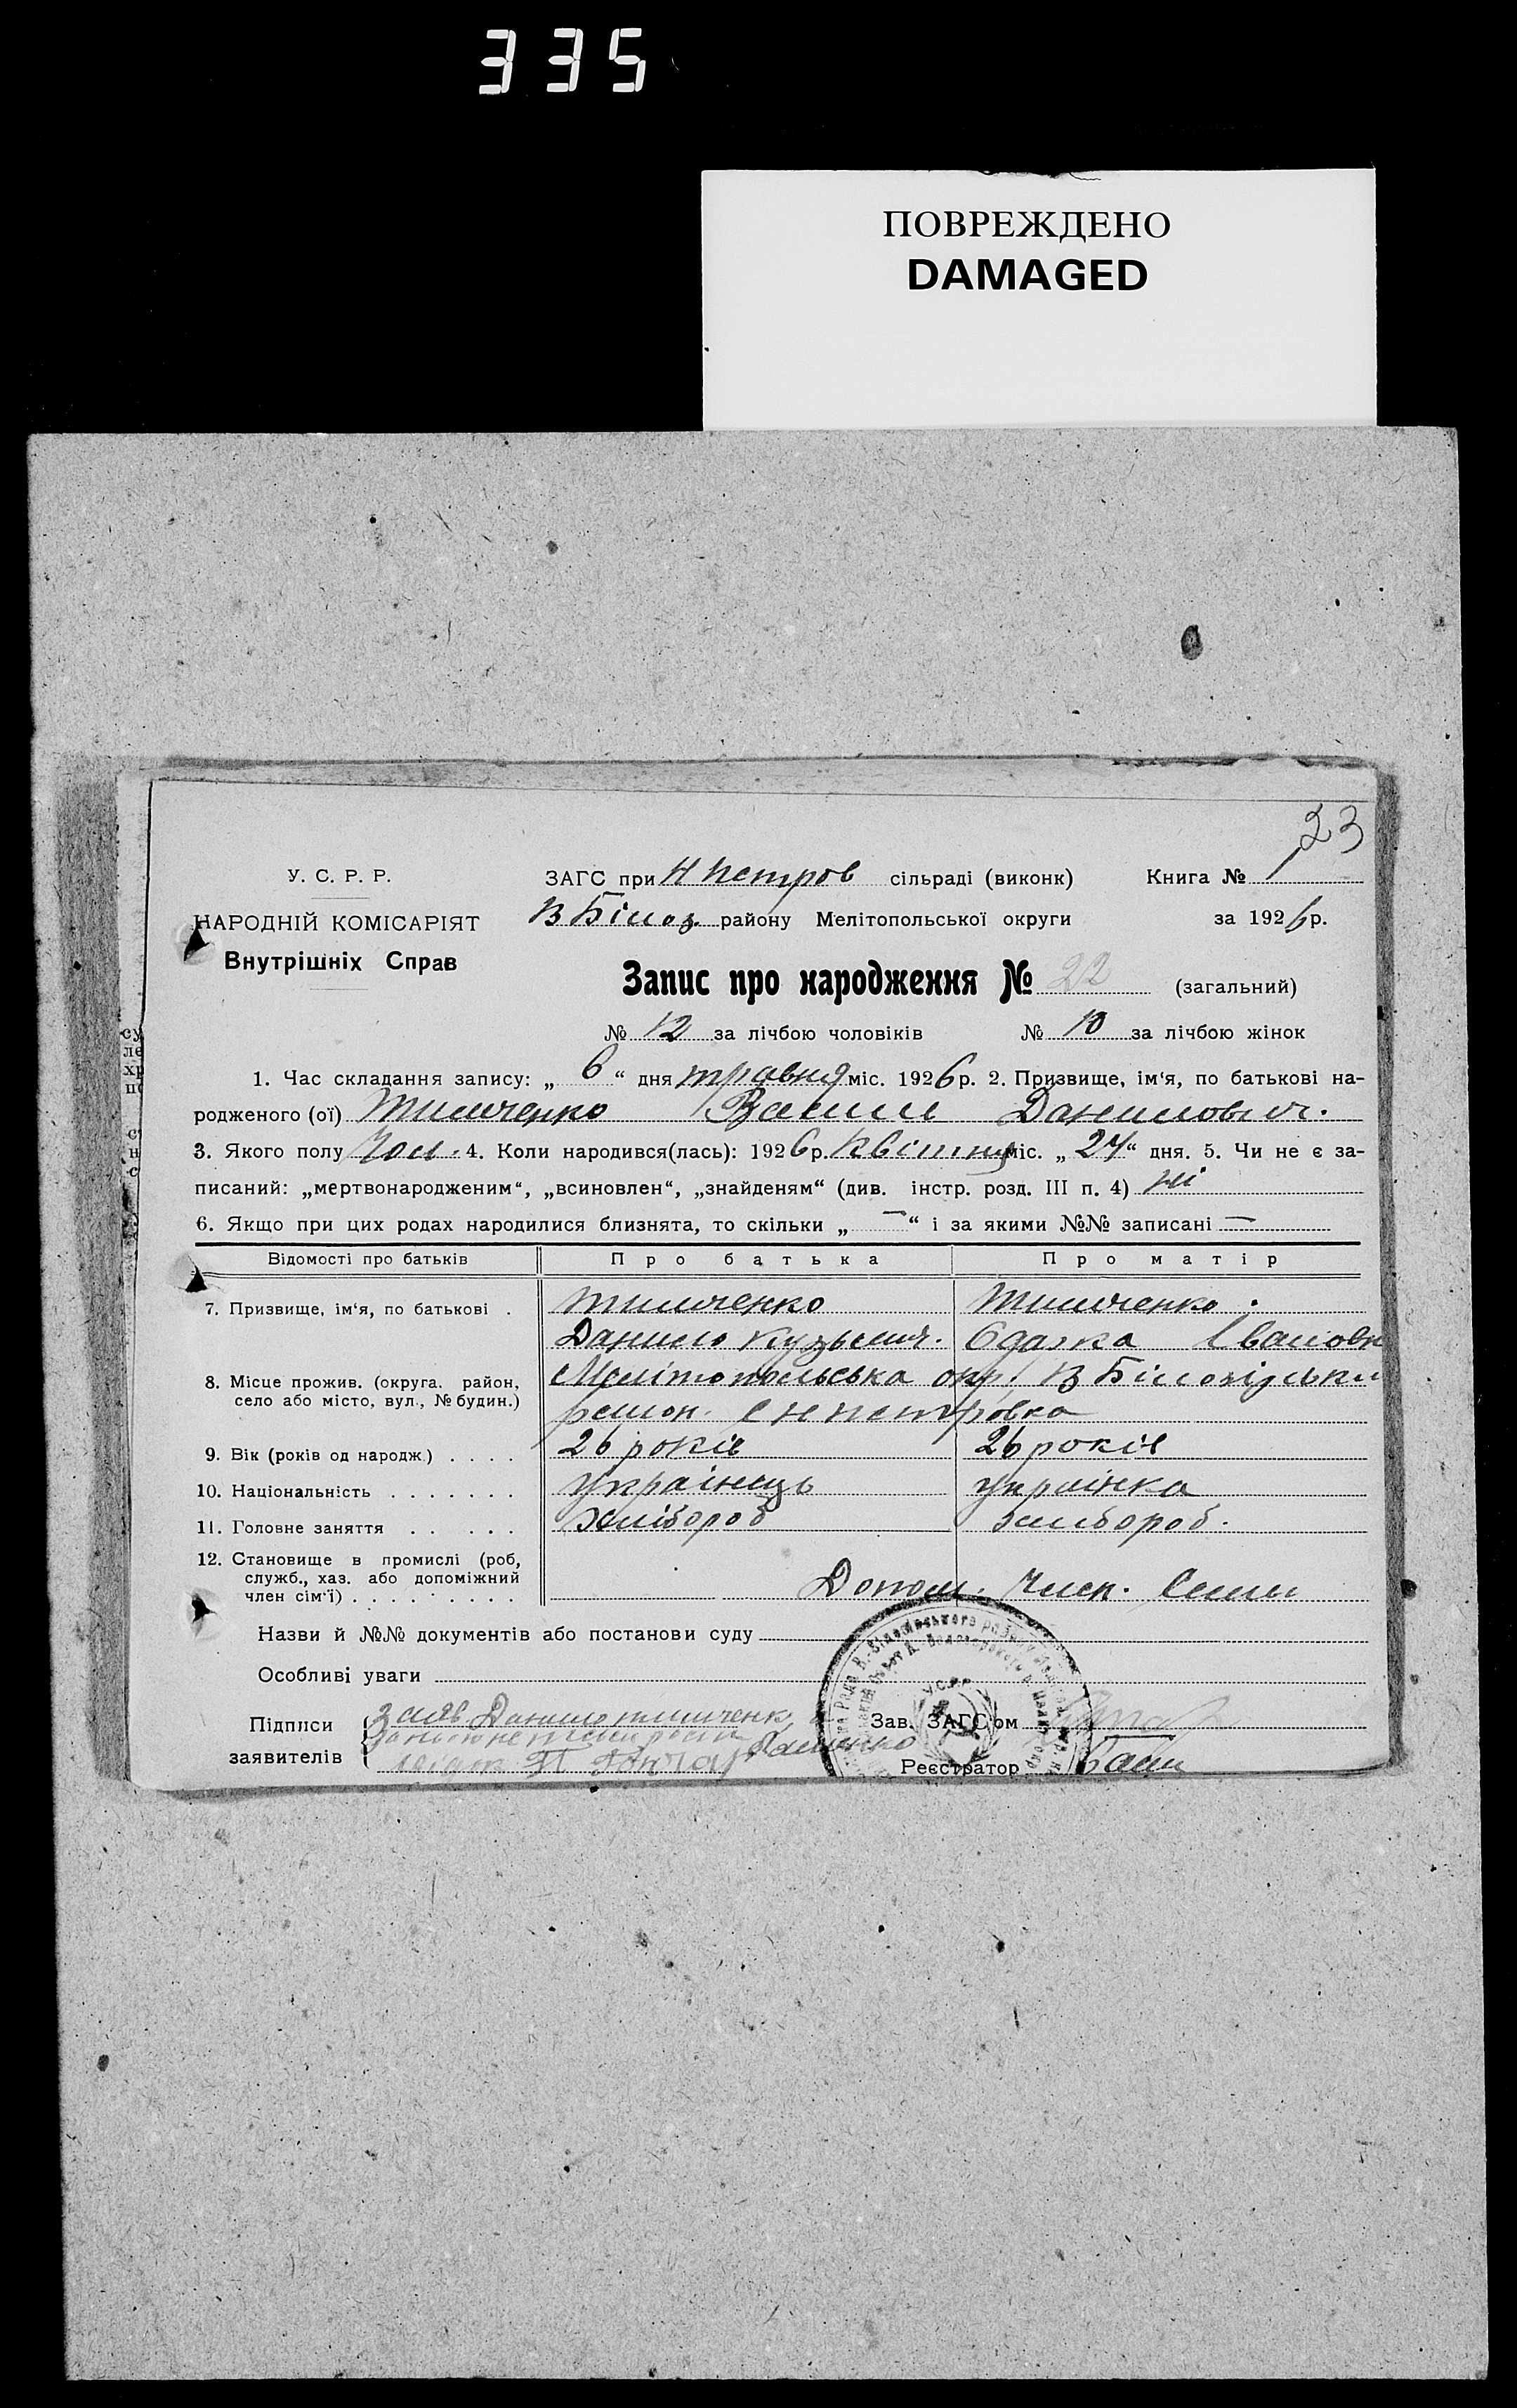 335
ПОВРЕЖДЕНО
DAMAGED
23
У. С. Р. Р.
НАРОДНІЙ КОМІСАРІЯТ
Внутрішніх Справ
ЗАГС при Н Петров сільраді (виконк) Книга № 1
В Білоз. району Мелітопольської округи за 1926 р.
Запис про народження № 22 (загальний)
№ 12 за лічбою чоловіків № 10 за лічбою жінок
1. Час складання запису: „ 6 “ дня травня міс. 1926 р. 2. Призвище, ім‘я, по батькові на-
родженого (ої) Тимченко Васил Данилович.
3. Якого полу Чол. 4. Коли народився(лась): 1926 р. Квітня міс. „ 24 “ дня. 5. Чи не є за-
писаний: „мертвонародженим“, „всиновлен“, „знайденям“ (див. інстр. розд. III п. 4) ні
6. Якщо при цих родах народилися близнята, то скільки „ — “ і за якими №№ записані —
Відомості про батьків Про батька Про матір
7. Призвище, ім‘я, по батькові . Тимченко Тимченко .
Данило Кузьмич. Одарка Івановн
8. Місце прожив. (округа. район, село або місто, вул., № будин.) Мелітопольська окр. В Білозірськи
район. с Н Петровка
9. Вік (років од народж.) . . . . 26 років 26 років
10. Національність . . . . . . . українець українка
11. Головне заняття . . . . . Хлібороб хлібороб.
12. Становище в промислі (роб,
служб., хаз. або допоміжний
член сім‘ї) . . . . . . . . . Допом. член. Семи
Назви й №№ документів або постанови суду
Особливі уваги
Підписи
заявителів
заяв Данило Тимченк
Гончар
Зав. ЗАГС‘ом
Реєстратор
У.С.Р.Р.